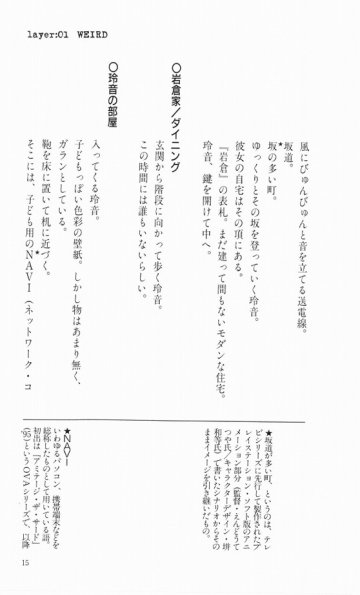 layer:01 WEIRD
風にびゅんびゅんと音を立てる送電線。
坂道。
坂の多い町。★
ゆっくりとその坂を登っていく玲音。
彼女の自宅はその頂にある。
『岩倉』の表札。まだ建って間もないモダンな住宅。
玲音、鍵を開けて中へ。
〇岩倉家／ダイニング
玄関から階段に向かって歩く玲音。
この時間には誰もいないらしい。
〇玲音の部屋
入ってくる玲音。
子どもっぽい色彩の壁紙。しかし物はあまり無く、
ガランとしている。
鞄を床に置いて机に近づく。
そこには、子ども用のNAVI★（ネットワーク・コ
★坂道が多い町、というのは、テレ
ビシリーズに先行して製作されたプ
レイステーション・ソフト版のアニ
メーション部分（監督・えんどうて
つや氏／キャラクターデザイン・垪
和等氏）で書いたシナリオからその
ままイメージを引き継いだもの。
★NAVI
いわゆる、パソコン、携帯端末などを
総称したものとして用いている語。
初出は「アミテージ・ザ・サード」
（'95）というOVAシリーズで、以降
15